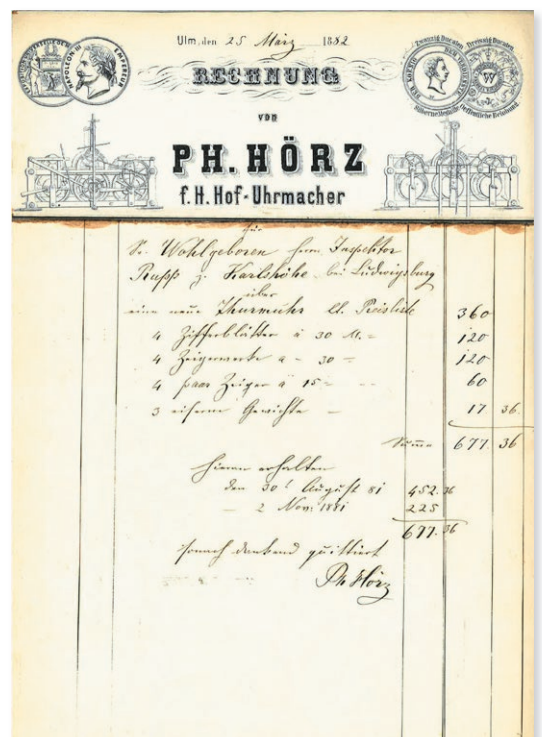 Ulm, den 25 März 1882
RECHNUNG
VON
PH. HÖRZ
f. H. Hof-Uhrmacher
NAPOLEON III EMPEREUR
für
Sr. Wohlgeboren Herrn Inspektor
z. Karlshöhe bei Ludwigsburg
über
eine neue Thurmuhr lt. Preisliste 360
4 Zifferblätter à 30 M. = 120
4 Zeigerwerke a - 30 = 120
4 paar Zeiger à 15 = 60
3 eiserne Gewichte 17 36.
Summa 677. 36
Hieran erhalten
den 30t August 81 452. 36
2 Nov. 1881 225
677. 36
dankend quittiert
Ph Hörz